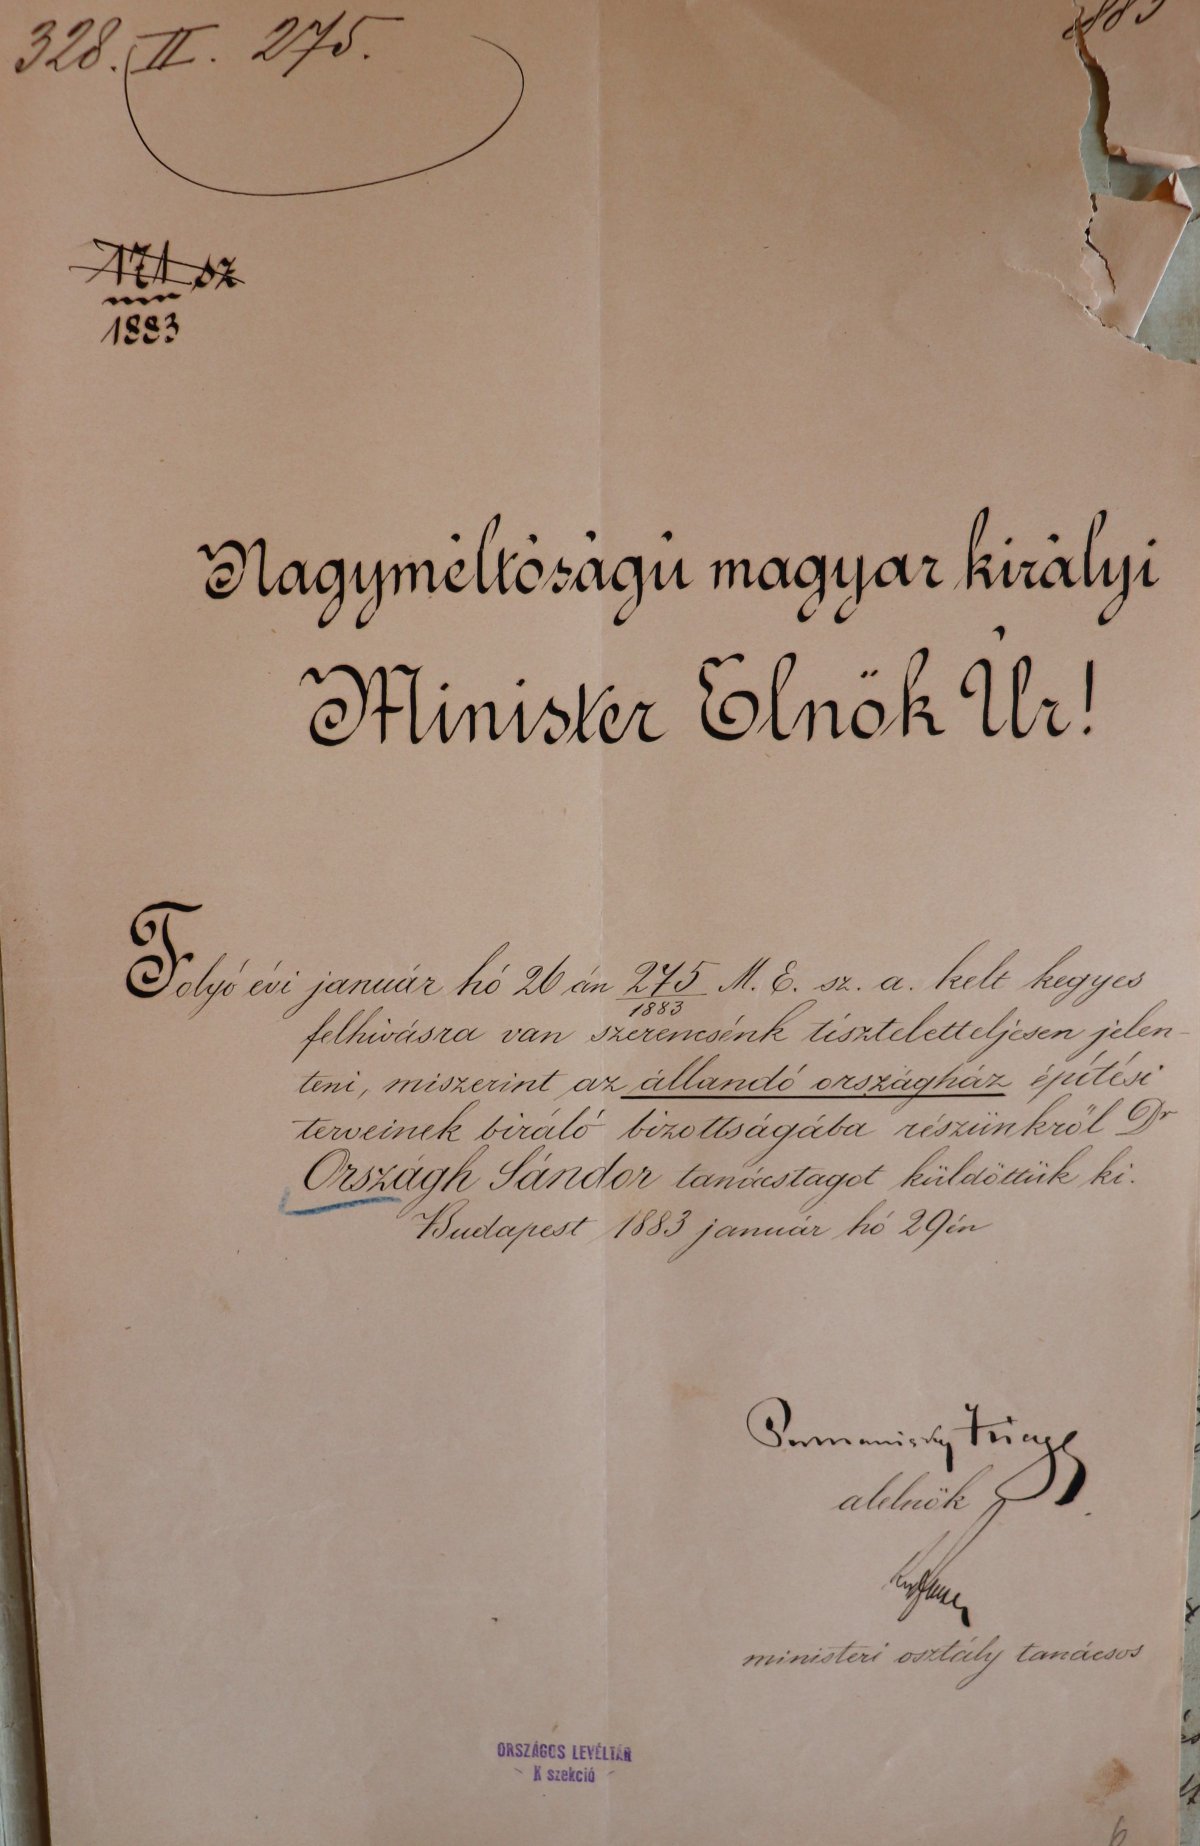 328. II. 275.
171 sz
1883
Nagyméltóságú magyar királyi
Minister Elnök Úr!
Folyó évi január hó 26 án 275 M. E. sz. a. kelt kegyes
1883
felhivásra van szerencsénk tiszteletteljesen jelen-
teni, miszerint az állandó országház építési
terveinek biráló bizottságába részünkről Dr
Országh Sándor tanácstagot küldöttük ki.
Budapest 1883 január hó 29én
alelnök
ministeri osztály tanácsos
ORSZÁGOS LEVÉLTÁR
K szekció
6